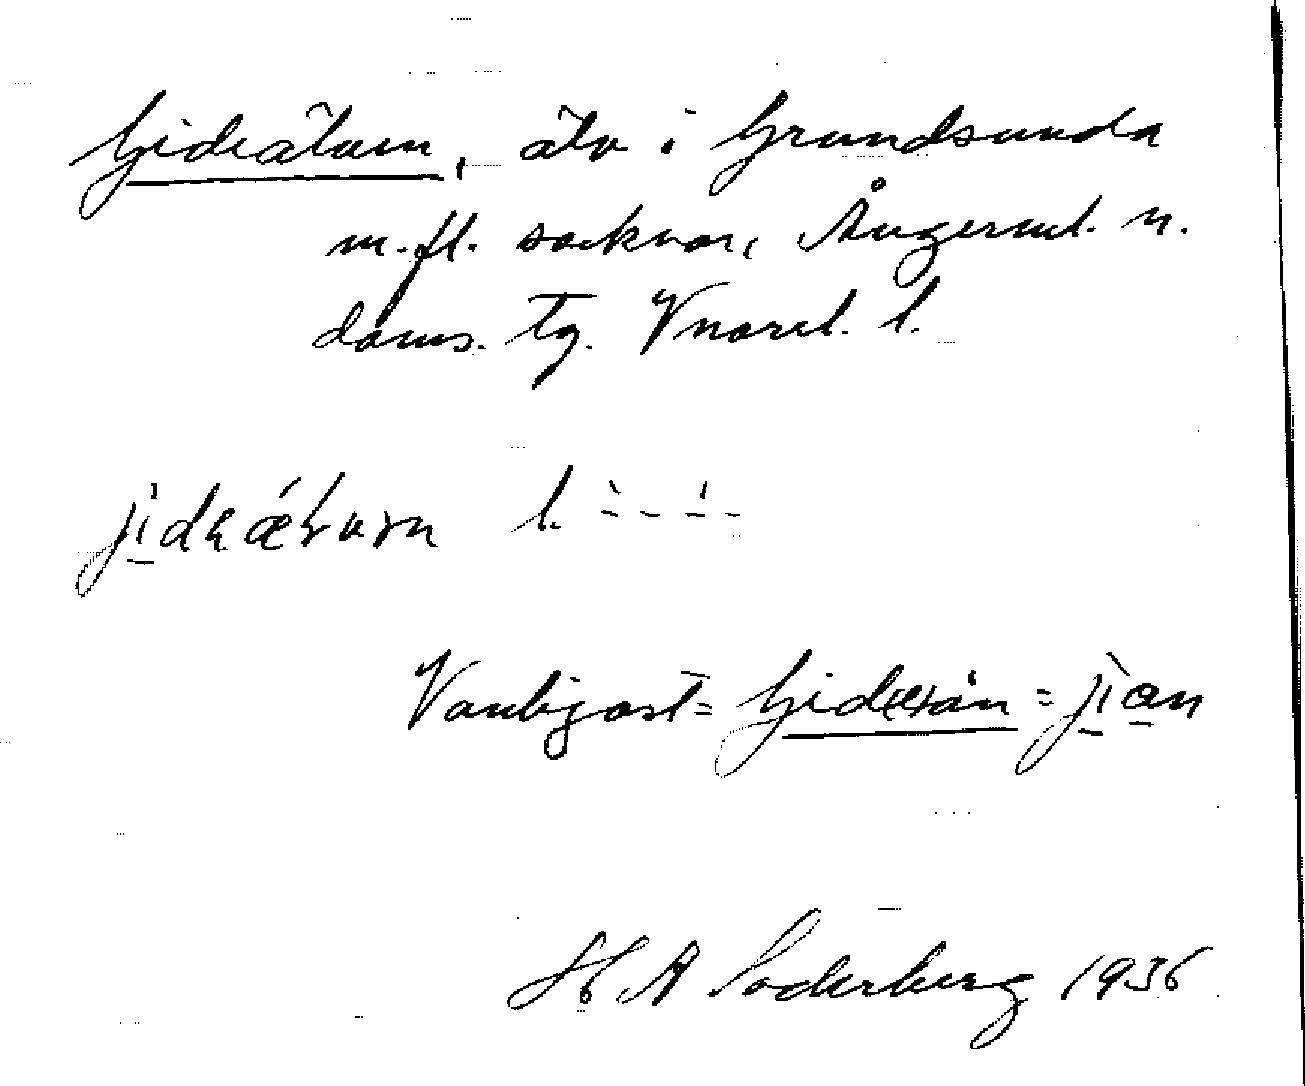 Gideälven, älv i Grundsunda
m.fl. socknar, Ångerml. n.
doms. tg. Vnorrl. l.
l.
Vanligast = Gid(e)ån =
H A Söderberg 1936